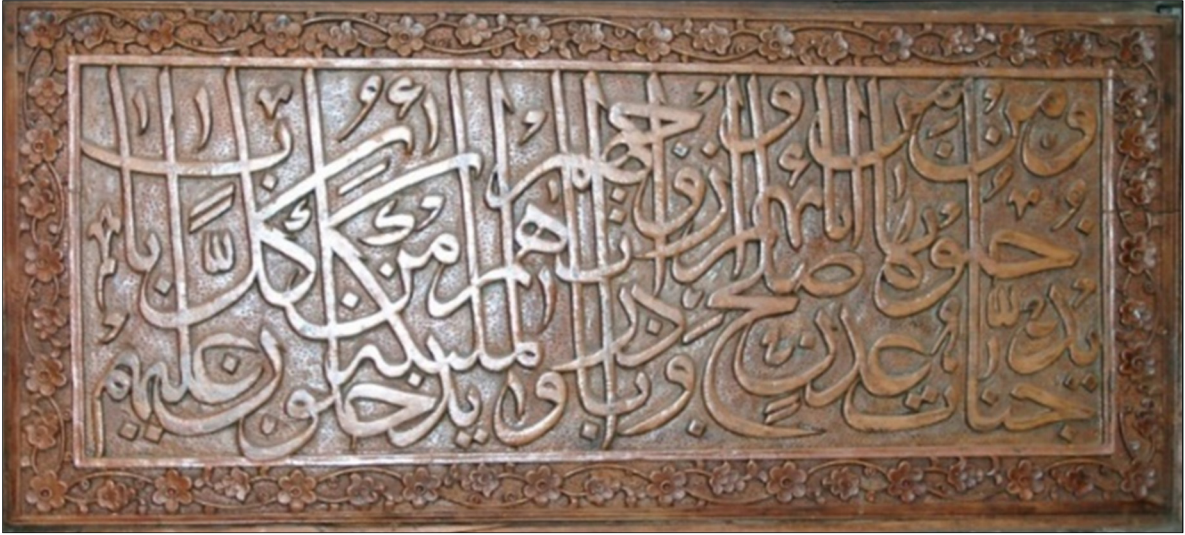 جنات عدن يدخلونها ومن صلح من ابائهم وازوجهم وذرياتهم والملئكة يدخلون عليهم من كل باب